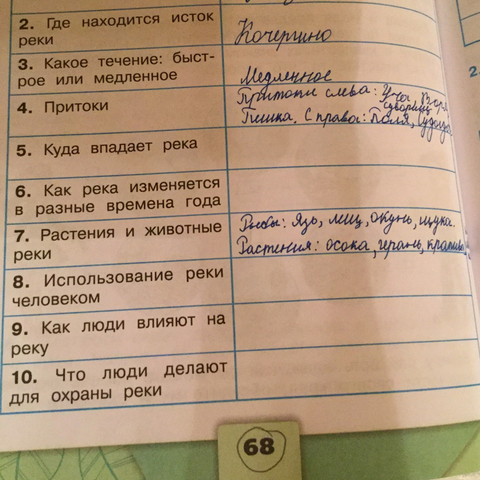 2. Где находится исток
реки
Кочергино
3. Какое течение: быст-
рое или медленное
Медленное
4. Притоки
Притоки слева: Уча, Вздер
Суворощ
Пешка. С права: Поля, Судогда
5. Куда впадает река
6. Как река изменяется
в разные времена года
7. Растения и животные
реки
Рыбы: Язь, лещ, окунь, щука.
Растения: осока, герань, крапива
8. Использование реки
человеком
9. Как люди влияют на
реку
10. Что люди делают
для охраны реки
68
2.